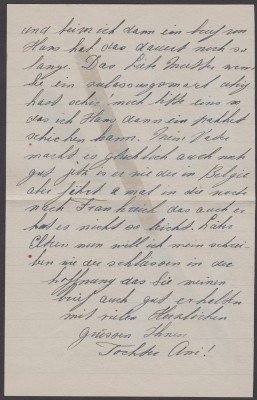 und bin ich dann ein brief von
Hans hat das dauert noch so
lange. Das Liebe Mutter wenn
Sie ein zulassungsmark übrig
hast schik mich bitte eins so
das ich Hans dann ein packet
schicken kann. Mein Vater
macht es glücklich auch noch
gut jetz is er nie die in Belgie
aber fährt 2 mal in die woche
nach Frankreich das auch er
hat es nicht so leicht. Liebe
Eltern nun will ich mein schrei-
ben wie die schliessen in die
hoffnung das Sie meinen
brief auch gut erhalten
mit vielen Herzlichen
Grüssen Ihren
Tochter Ani!